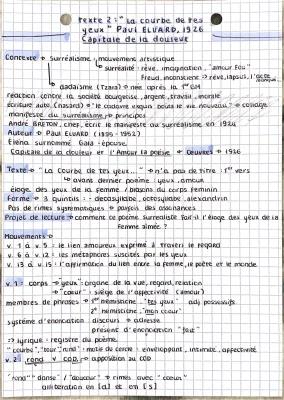 Texte 2 : " La courbe de tes
yeux " Paul ELUARD, 1926
Capitale de la douleur
Contexte → surréalisme : mouvement artistique
→ surréalité : rêve, imagination, "amour fou"
Freud, inconscient → rêve, lapsus, l'acte
→ dadaïsme (Tzara) → née après la 1ère GM
réaction contre la société bourgeoise, argent, travail, morale
écriture auto. (hasard) → "le cadavre exquis boira le vin nouveau" → collage
manifeste du surréalisme → principes
André BRETON, chef, écrit le manifeste du surréalisme en 1924
Auteur → Paul ELUARD (1895 - 1952)
Elena surnommé Gala : épouse
Capitale de la douleur et L'Amour la poésie → Oeuvres → 1926
Texte → " La courbe de tes yeux... " → n'a pas de titre : 1er vers
→ avons dernier poème : yeux, amour
éloge des yeux de la femme / blasons du corps féminin
Forme → 3 quintils : - décasyllabe, octosyllabe, alexandrin
Pas de rimes systématiques → parfois des assonances
Projet de lecture → comment ce poème surréaliste fait-il l'éloge des yeux de la
Femme aimée ?
Mouvements →
v. 1 à v. 5 : le lien amoureux exprimé à travers le regard
v. 6 à v. 12 : les métaphores suscités par les yeux
v. 13 à v. 15 : l'affirmation du lien entre la femme, le poète et le monde
v. 1 : corps → "yeux" : organe de la vue, regard, relation
→ "cœur" : siège de l'affectivité (amour)
membres de phrases → 1er hémistiche : "tes yeux" adj possessifs
2e hémistiche : "mon coeur"
système d'énonciation discours → adresse
présent d'énonciation "fait"
→ lyrique : registre du poème.
"courbe", "tour", "rond" : motif du cercle : enveloppant, intimité, affectivité
v. 2 : rond v COD → apposition au COD
"rond" "danse" / "douceur" → rimes avec "coeur"
allitération en [d] et en [s]